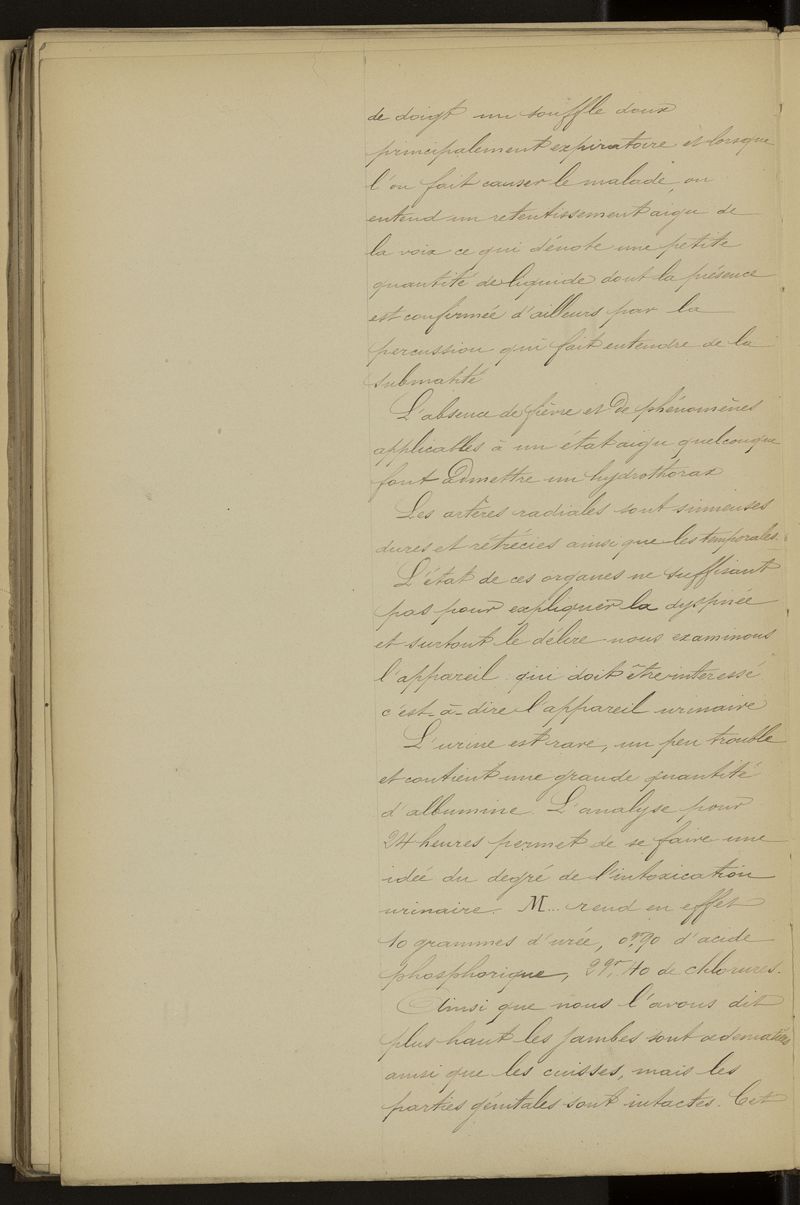 de doigt un souffle doux
principalement expiratoire et lorsque
l'on fait causer le malade, on
entend un retentissement aigu de
la voix ce qui dénote une petite
quantité de liquide dont la présence
est confirmée d'ailleurs par la
percussion qui fait entendre de la
submatité
L'absence de fièvre et de phénomènes
applicables à un état aigu quelconque
font admettre un hydrothorax
Les artères radiales sont sinueuses
dures et rétrécies ainsi que les temporales.
L'état de ces organes ne suffisant
pas pour expliquer la dyspnée
et surtout le délire nous examinons
l'appareil qui doit être interessé
c'est-à-dire l'appareil urinaire
L'urine est rare, un peu trouble
et contient une grande quantité
d'albumine. L'analyse pour
24 heures permet de se faire une
idée du degré de l'intoxication
urinaire. M... rend en effet
10 grammes d'urée, 0gr90 d'acide
phosphorique, 2gr,40 de chlorures.
Ainsi que nous l'avons dit
plus haut les jambes sont œdematiées
ainsi que les cuisses, mais les
parties génitales sont intactes. Cet